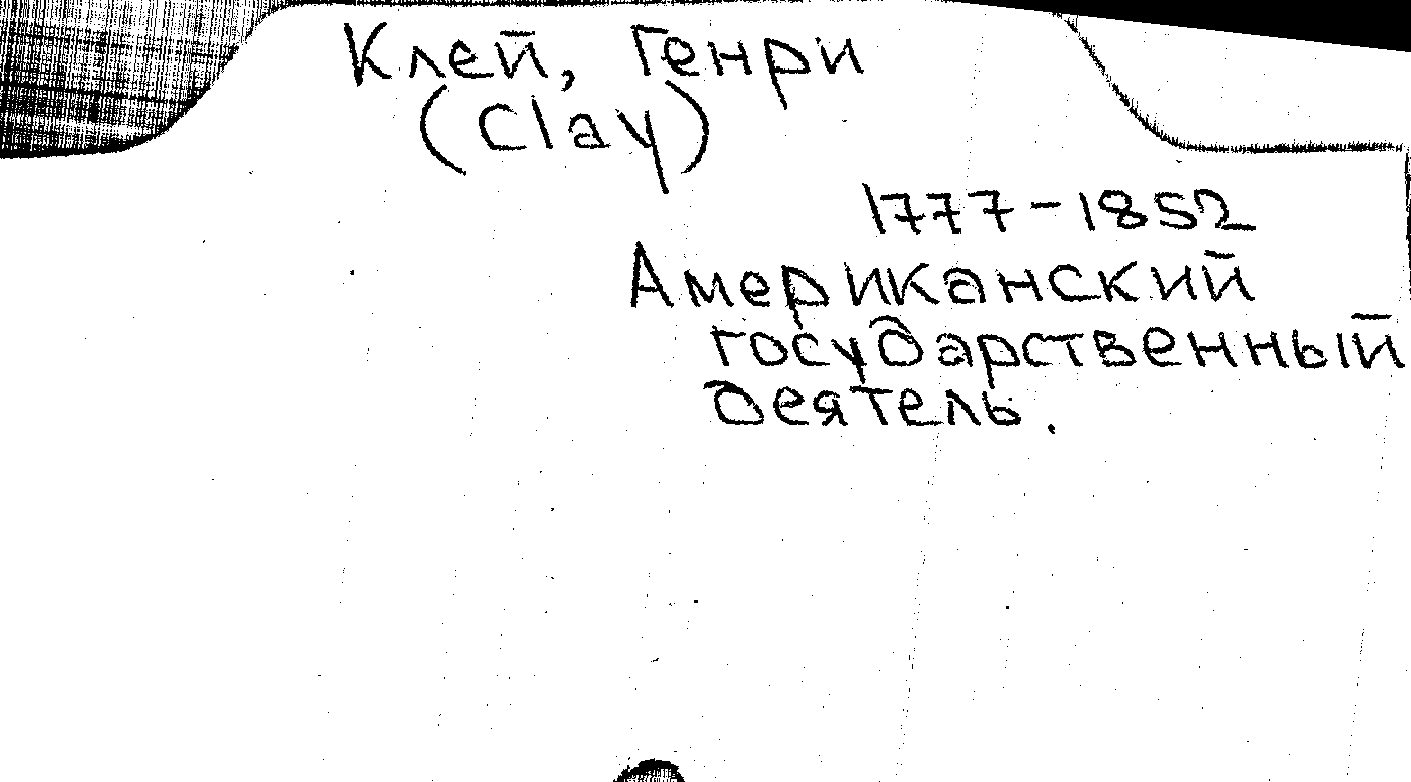 Клей, Генри
(Clay)
1777-1852
Американский
государственный
деятель.